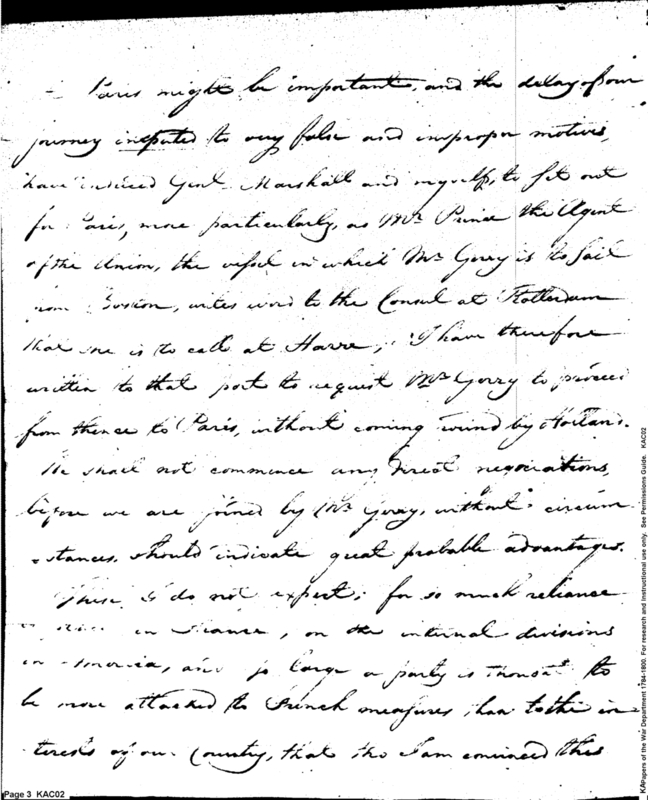 Paris might be important, and the delay of our
journey imputed to very false and improper motives,
have induced Genl. Marshall and myself, to set out
for Paris, more particularly, as Mr. Prince the Agent
of the Union, the vessel in which Mr. Gerry is to sail
from Boston, writes word to the Consul at Rotterdam
that she is to call at Havre; I have therefore
written to that port to request Mr. Gerry to proceed
from thence to Paris, without coming round by Holland.
We shall not commence any direct negociations,
before we are joined by Mr. Gerry, without circum
-stances, should indicate great probable advantages.
These I do not expect; for so much reliance
in France, on the internal divisions
in America, and so large a party is thought to
be more attached to French measures than to the in-
terests of our Country, that tho I am convinced this
Page 3 KAC02
KAPapers of the War Department 1784-1800. For research and instructional use only. See Permissions Guide. KAC02